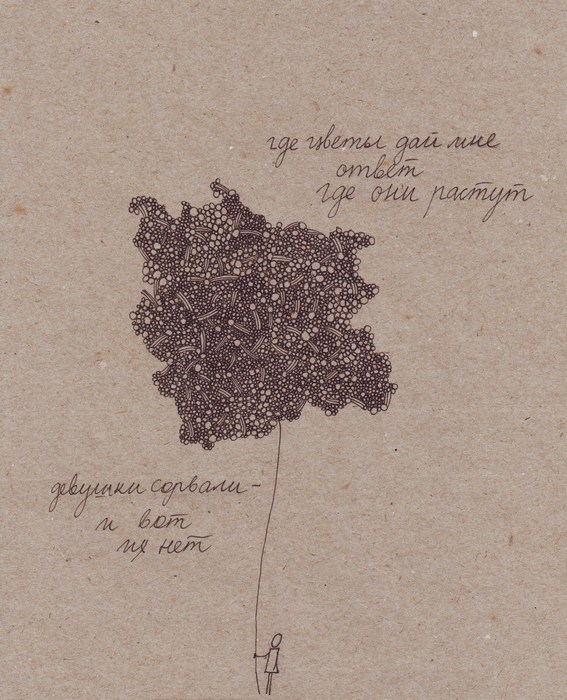 где цветы дай мне
ответ
где они растут
девушки сорвали –
и вот
их нет